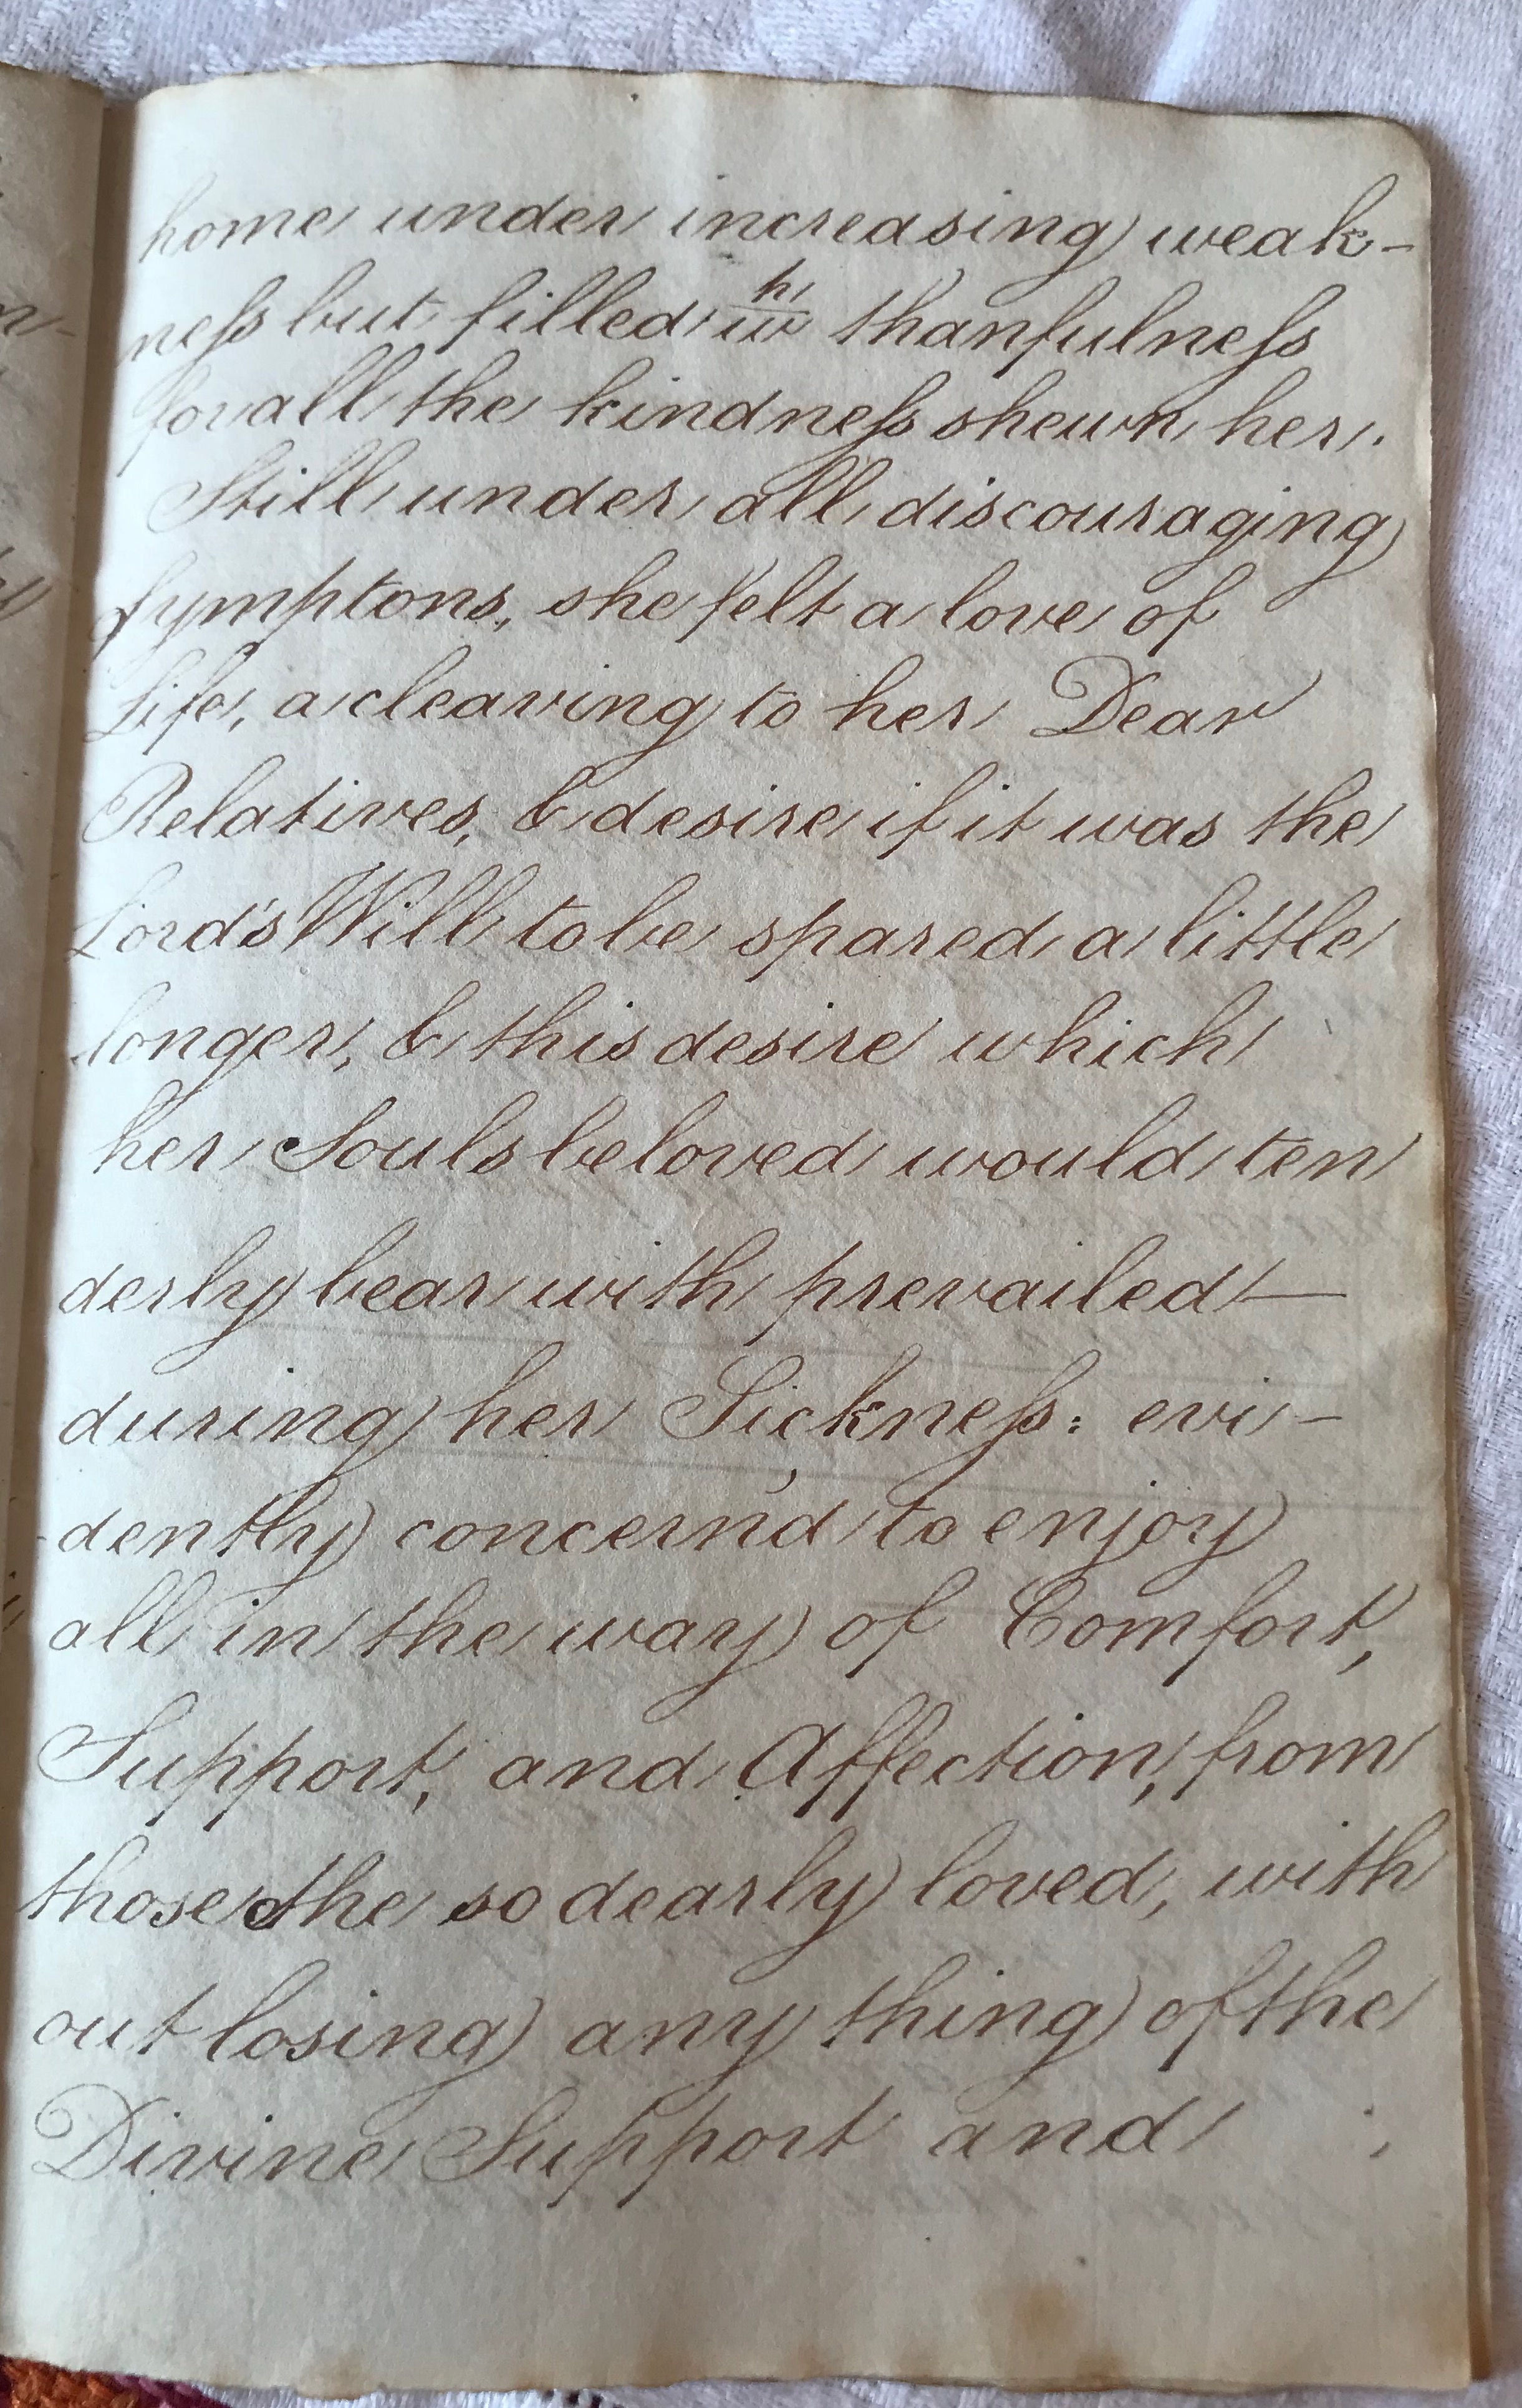 home under increasing weak-
neſs but filled wh thanfulneſs
for all the kindneſs shewn her.
Still under all discouraging
Symptons, she felt a love of
Life, a cleaving to her Dear
Relatives, & desire if it was the
Lord's Will to be spared a little
longer, & this desire which
her Souls beloved would ten
derly bear with prevailed —
during her Sickneſs: evi-
dently concern'd to enjoy
all in the way of Comfort,
Support, and Affection, from
those she so dearly loved, with
out losing any thing of the
Divine Support and